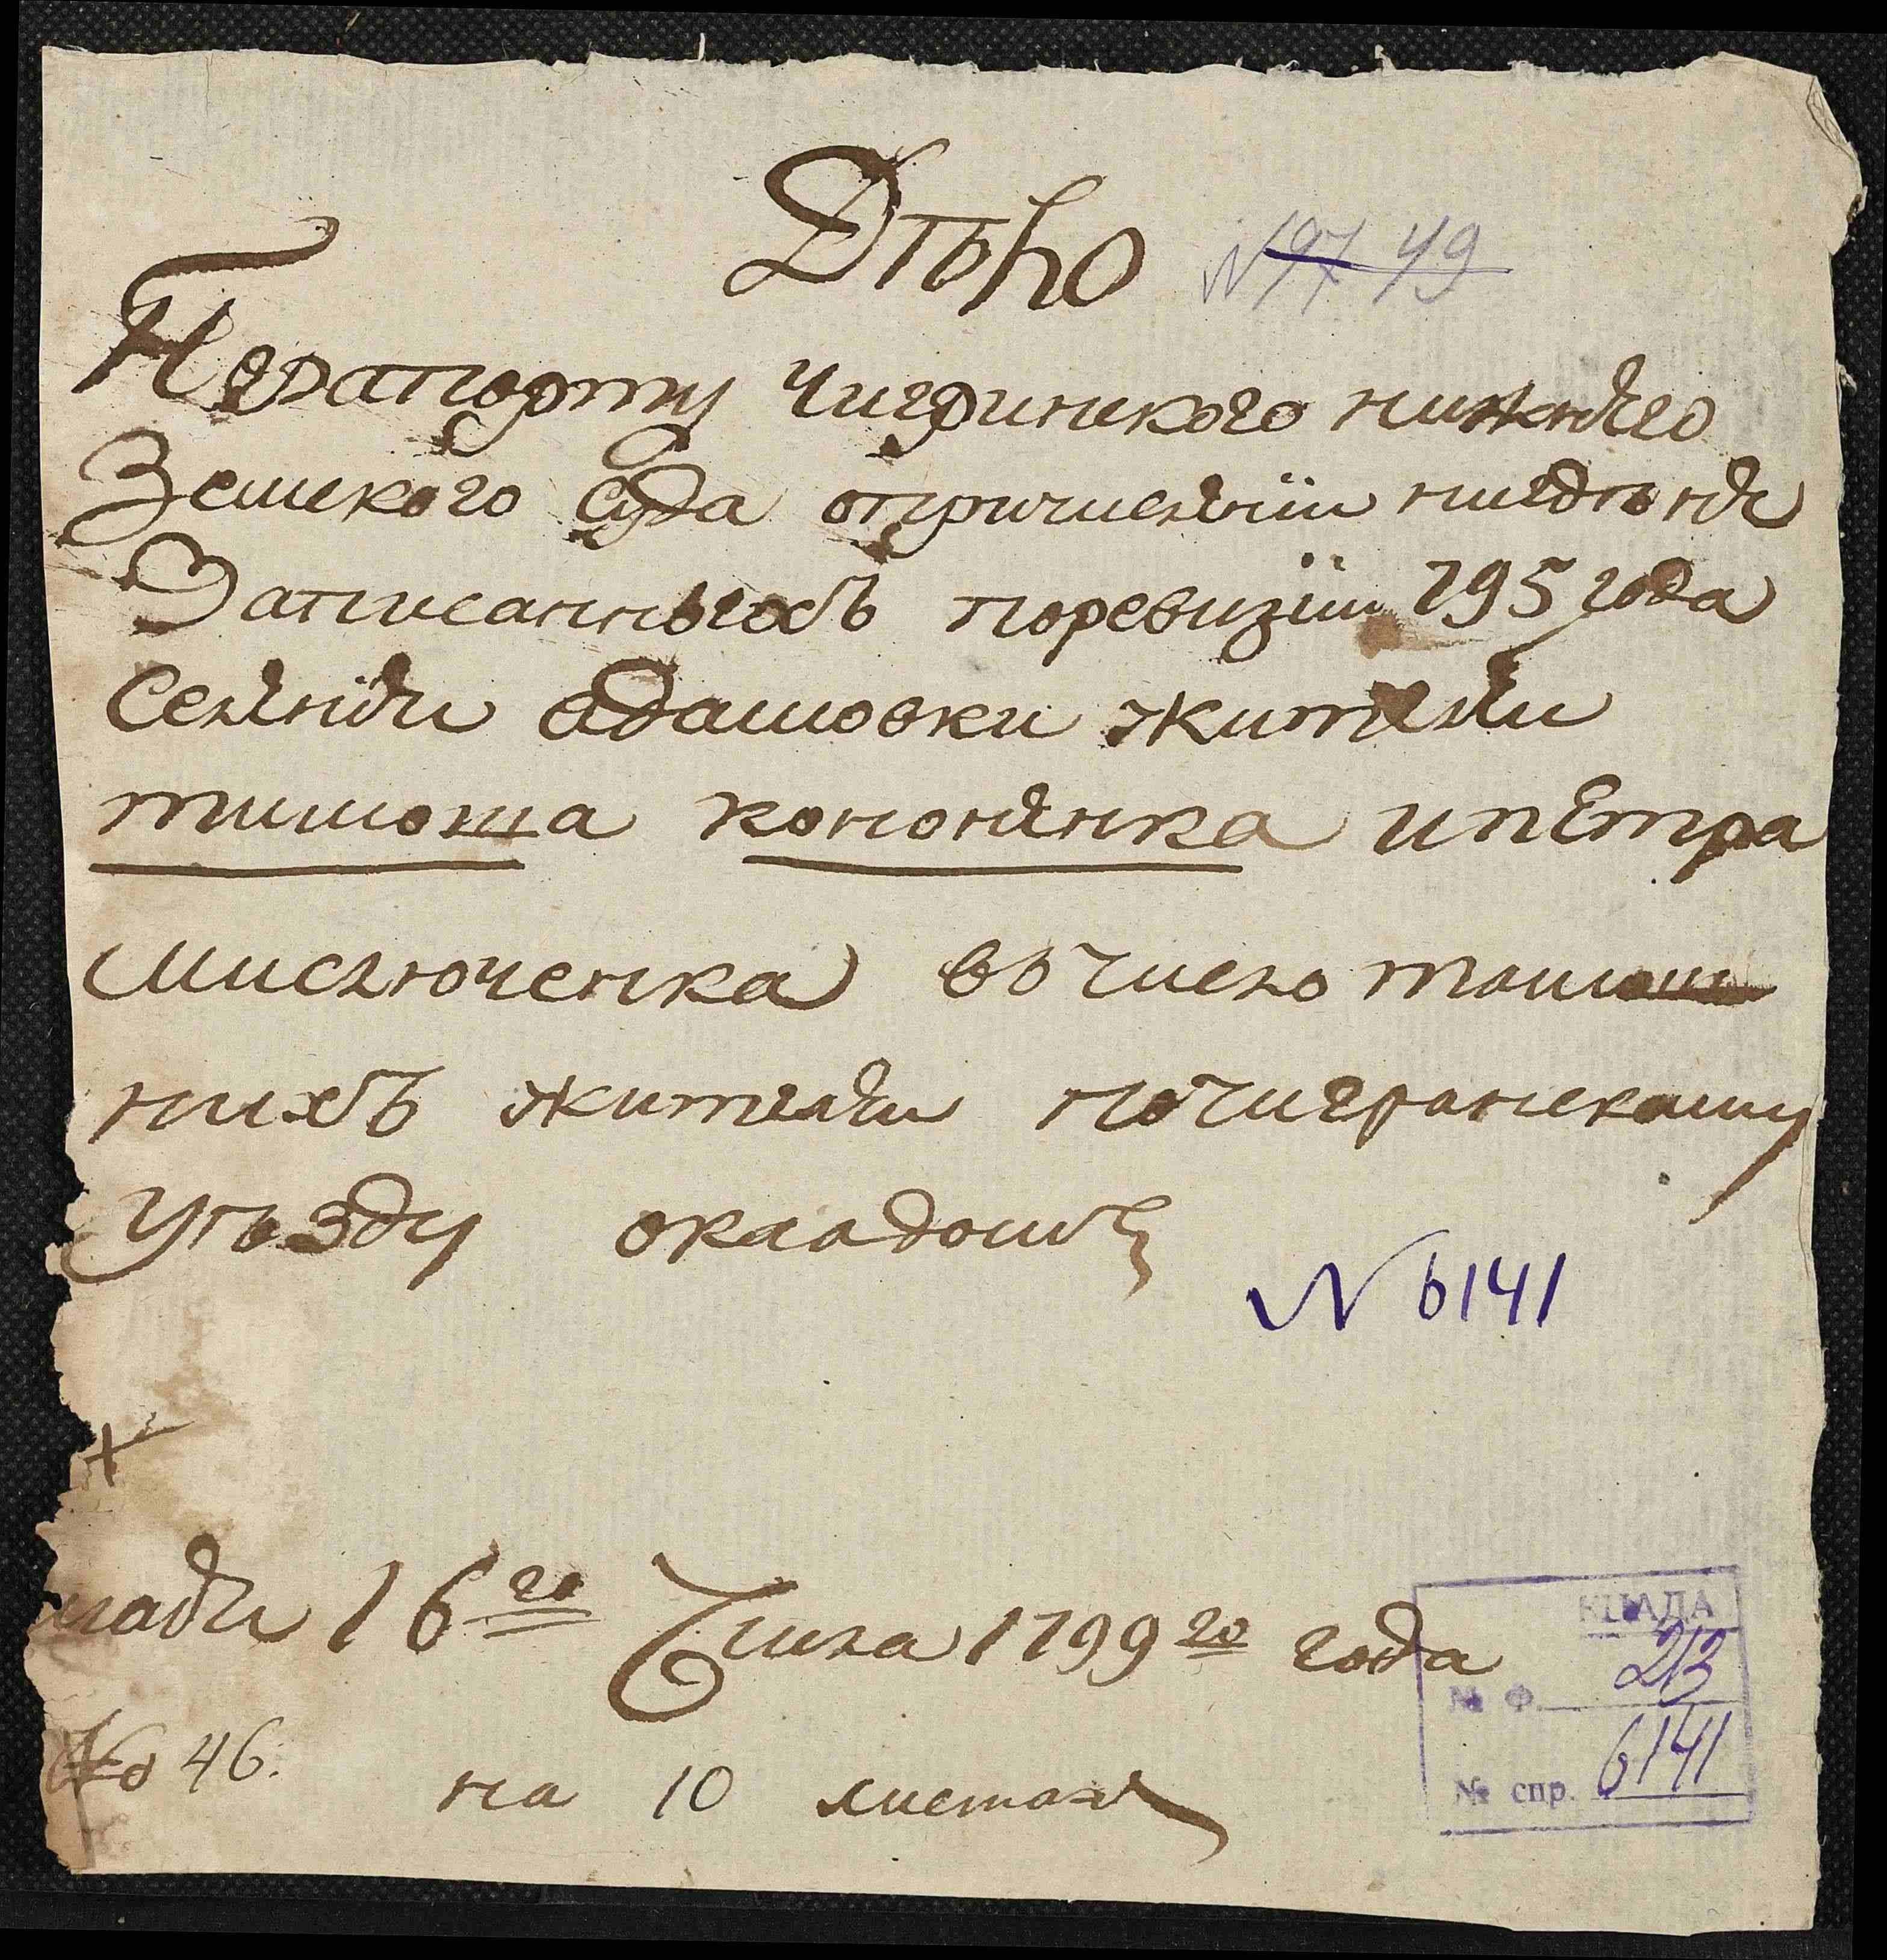 Дѣло
N 97 49
Порапорту Чигринского нижнего
Земского Суда опричислении нигде не
Записанныхъ поревизіи 795 года
Селения адамовки жителей
тимоша кононенка ипетра
Мислюченка въчисло тамош
нихъ жителей почигринскому
уѣзду окладомъ
N 6141
16го Числа 1799го года
№ 46.
на 10 листахъ
КЦАДА
№ Ф. 213
№ спр. 6141